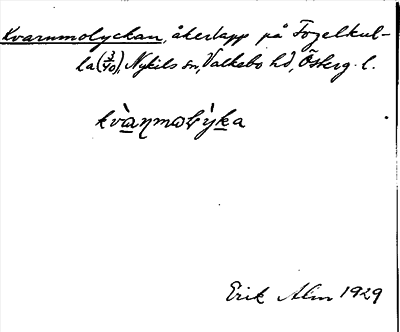 Kvarnmolyckan, åkerlapp på Fogelkul-
la (3/40), Nykils sn, Valkebo hd, Österg. l.
Erik Alm 1929